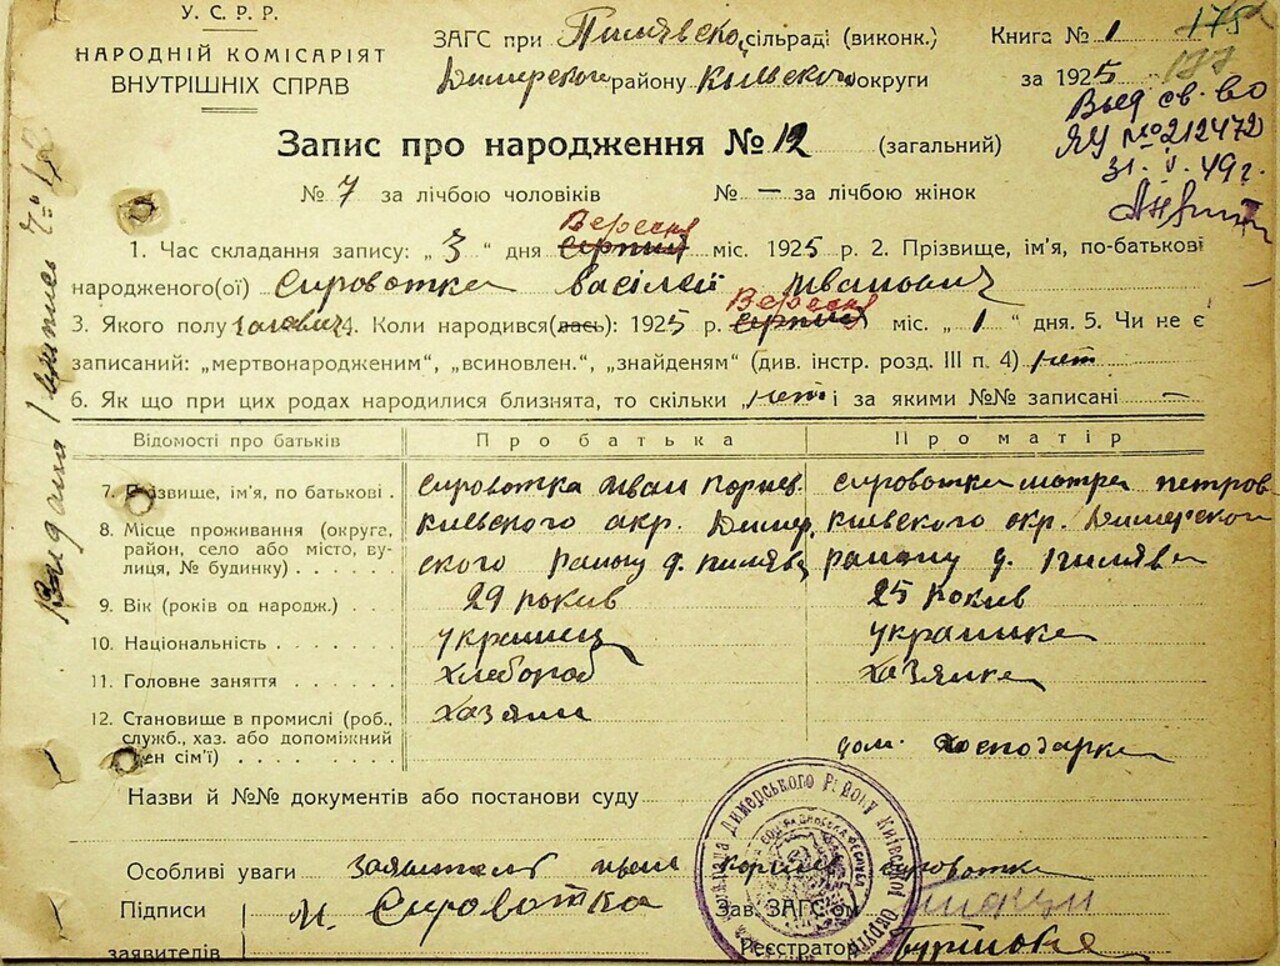 У. С. Р. Р.
НАРОДНІЙ КОМІСАРІЯТ
ВНУТРІШНІХ СПРАВ
ЗАГС при Пилявской сільраді (виконк.)
Димерского району Київского округи
Книга № 1
175
177
за 1925
Выд св-во
ЯУ № 212472
31. V. 49 г.
Запис про народження № 12 (загальний)
№ 7 за лічбою чоловіків № — за лічбою жінок
Вересня
1. Час складання запису: „ 3 “ дня серпня міс. 1925 р. 2. Прізвище, ім'я, по-батькові
народженого(ої) Сировотка Василей Иванович
Вересня
3. Якого полу чоловіч 4. Коли народився(лась): 1925 р. серпня міс. „ 1 “ дня. 5. Чи не є
записаний: „мертвонародженим“, „всиновлен.“, „знайденям“ (див. інстр. розд. III п. 4) нет
6. Як що при цих родах народилися близнята, то скільки нет і за якими №№ записані —
Відомості про батьків Про батька Про матір
7. Прізвище, ім'я, по батькові . Сировотка Иван Корнев. Сировотка Мотря Петров
8. Місце проживання (округа, район, село або місто, вулиця, № будинку) . . . .
Киевского окр. Димерского району д. Пилява
Киевского окр. Димерского району д. Пилява
9. Вік (років од народж.) . . 29 рокив 25 рокив
10. Національність . . . . . . украинец украинка
11. Головне заняття . . . . . . хлебороб хазяйка
12. Становище в промислі (роб., служб., хаз. або допоміжний член сім'ї) . . . . . . .
хазяин
дом. господарка
Назви й №№ документів або постанови суду
Особливі уваги заявитель Иван Корнев Сировотка
Підписи
заявителів
И. Сировотка
Зав. ЗАГС'ом
Реєстратор
Видана выпись